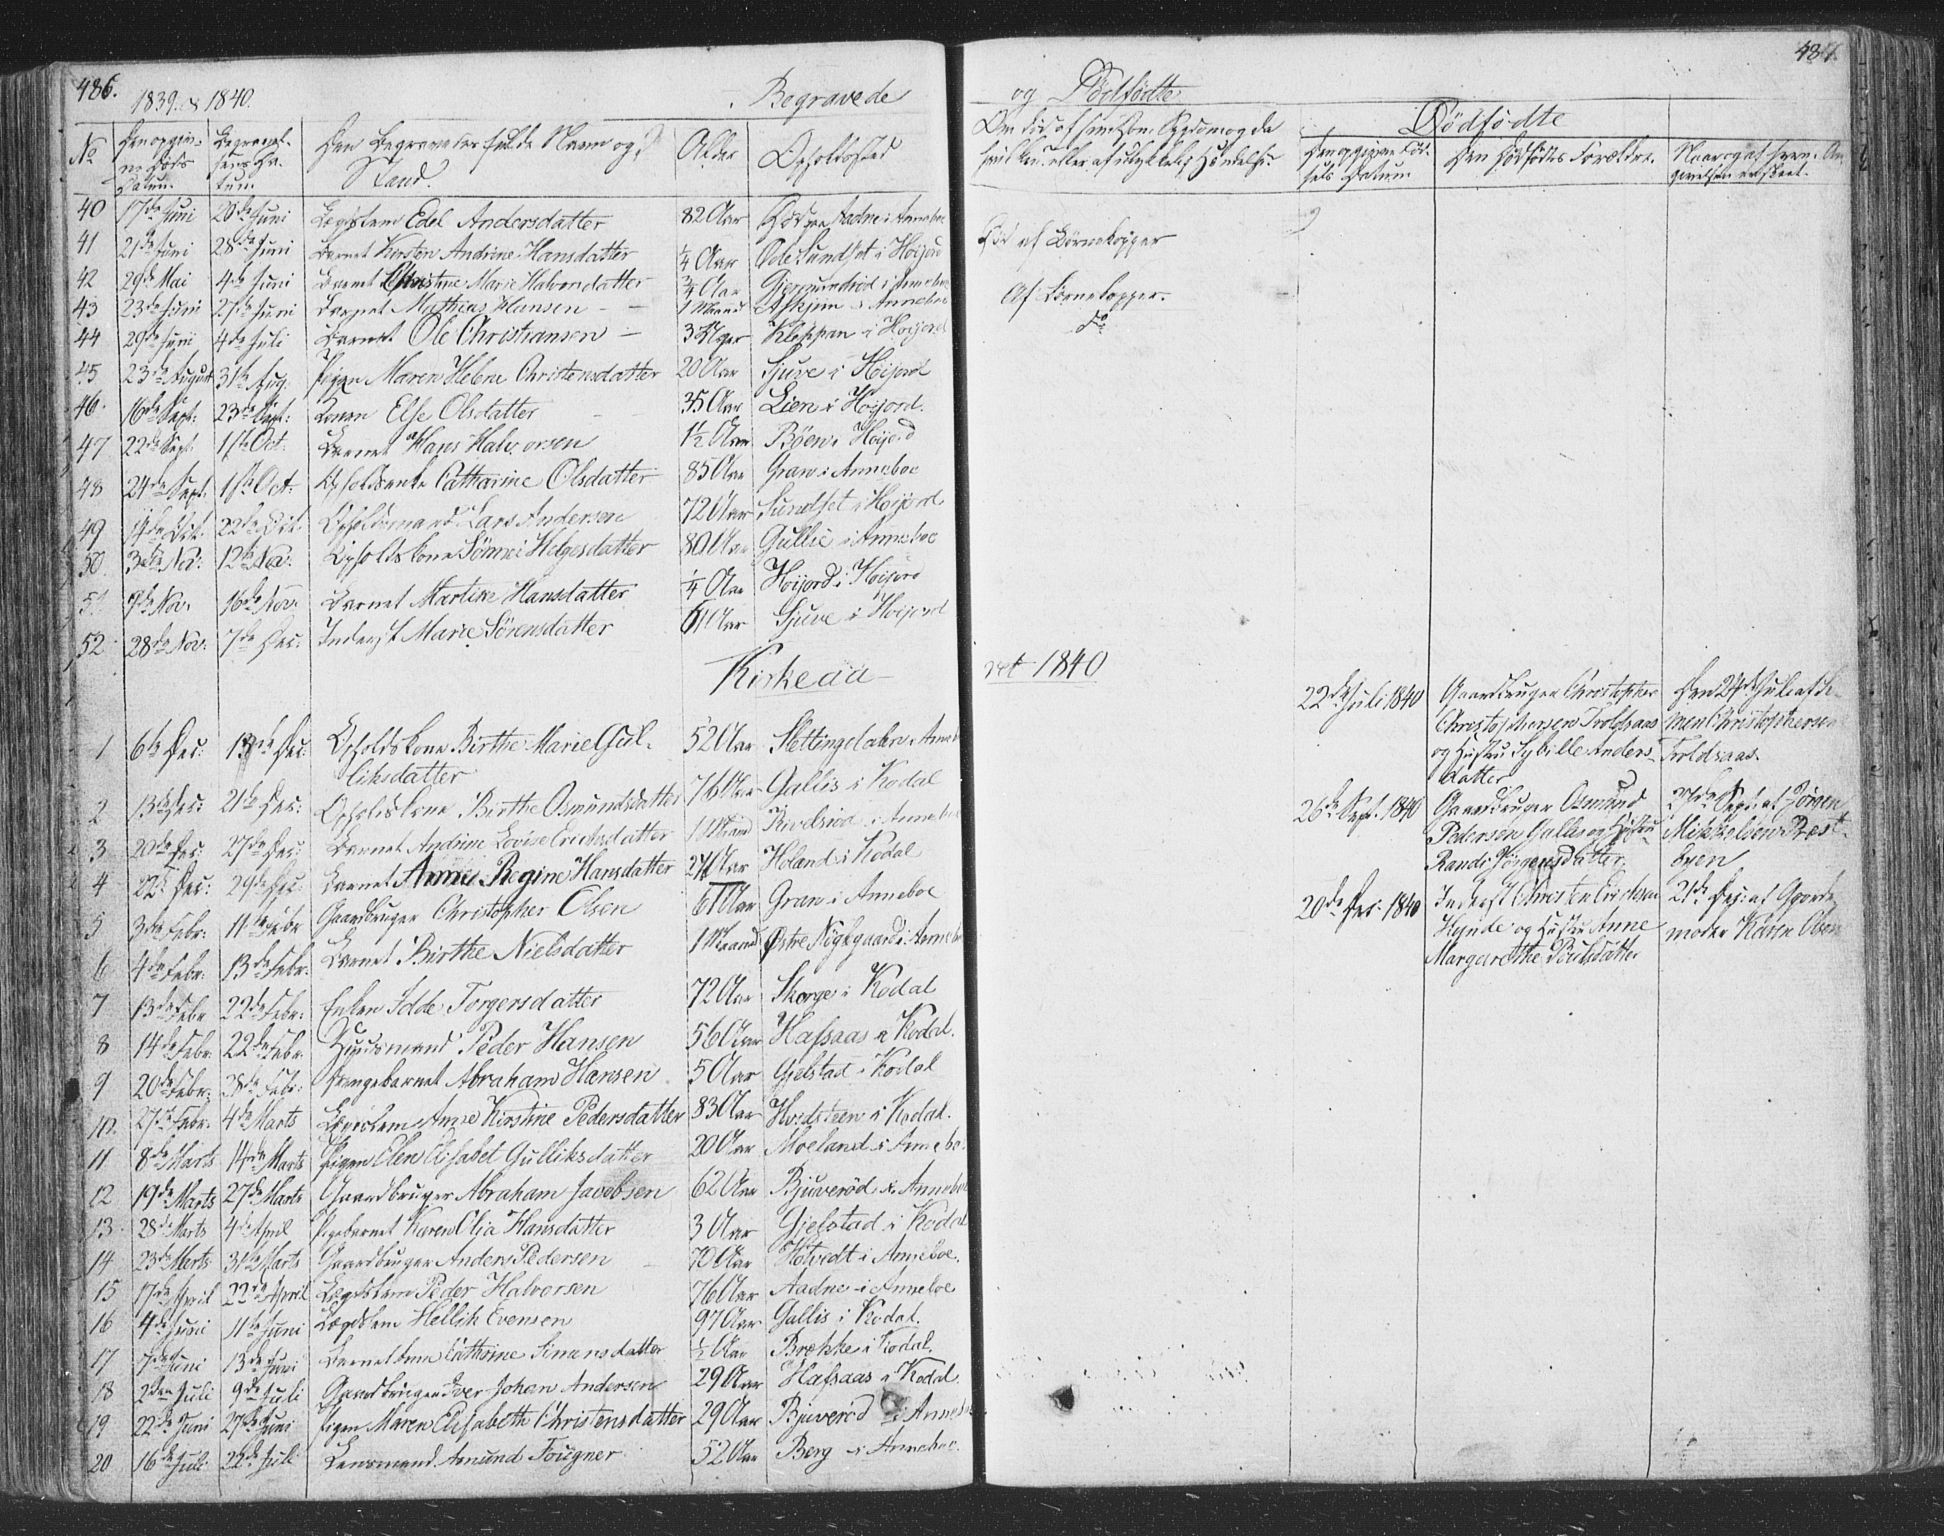 486.
1839. & 1840.
Begravede
No
Den opgivne Døds Datum.
Begravelsens Datum.
Den Begravedes fulde Navn og Stand.
Alder
Opholdssted
40 17de Juni 20de Juni Lægslem Edel Andersdatter 82 Aar Aadne i Anneboe
41 21de Juni 28de Juni Barnet Karsten Andrine Hansdatter ¼ Aar Sundset i Høijord
42 29de Mai 4de Juni Barnet Christine Marie Halvorsdatter ¾ Aar Gjermundrød i Anneboe
43 23de Juni 27de Juni Barnet Mathias Hansen 1 Maaned Askjem i Anneboe
44 29de Juni 4de Juli Barnet Ole Christiansen 3 Uger Kleppan i Høijord
45 23de August 31te Aug. Pigen Maren Helene Christensdatter 20 Aar Sjuve i Høijord
46. 16de Sept: 23de Sept: Konen Else Olsdatter 35 Aar Lien i Høijord.
47 22de Sept. 1ste Oct. Barnet Hans Halvorsen 1½ Aar Bøen i Høijord
48 24de Sept. 1ste Oct. Opholdsenke Catharine Olsdatter 85 Aar Gran i Anneboe
49 14de Oct. 22de Oct. Opholdsmand Lars Andersen 72 Aar Sundset i Høijord
50. 3die Nov: 12te Nov: Opholdskone Sønnei Helgesdatter 80 Aar Gullie i Anneboe
51 7de Nov. 16de Nov. Barnet Martine Hansdatter ¼ Aar Høijord i Høijord
52 28de Nov. 7de Dec: Inderst Marie Sørensdatter 61 Aar Sjuve i Høijord
Kirkeaa-
1 6te Dec: 13de Dec: Opholdskone Birthe Marie Gul- 52 Aar Slettingdalen i Anneb
liksdatter
2 13de Dec: 21de Dec: Opholdskone Birthe Osmundsdatter 76 Aar Gallis i Kodal
3 20de Dec: 27de Dec: Barnet Andrine Lovise Erichsdatter 1 Maaned i Anneboe
4 22de Dec: 29de Dec: Barnet Anne Regine Hansdatter Aar Holand i Kodal
5 3die Febr: 11te Febr Gaardbruger Christopher Olsen 61 Aar Gran i Anneboe
6 4de Febr: 13de Febr: Barnet Birthe Nielsdatter 1 Maaned Østre Nøgleegaard i Anneboe
7 13de Febr 22de Febr: Enken Idde Torgersdatter 72 Aar Skorge i Kodal
8 14de Febr 22de Febr Huusmand Peder Hansen 56 Aar Hafsaas i Kodal.
9 20de Febr: 28de Febr: Drengebarnet Abraham Hansen 5 Aar Gjelstad i Kodal
10. 27de Febr: 4de Marts Lægslem Anne Kirstine Pedersdatter 83 Aar Hvidsteen i Kodal.
11 8de Marts 14de Marts Pigen Elen Elisabet Gulliksdatter 20 Aar Moeland i Anneboe
12 19de Marts 27de Marts Gaardbruger Abraham Jacobsen 62 Aar Bjuverød i Anneboe
13. 28de Marts 4de April Pigebarnet Karen Elia Hansdatter 3 Aar Gjelstad i Kodal
14 23de Marts 31te Marts Gaardbruger Anders Pedersen 70 Aar Hotvedt i Anneboe.
15 17de April 22de April Lægslem Peder Halvorsen 76 Aar Aadne i Anneboe
16 4de Juni 11te Juni Lægslem Hellik Evensen 97 Aar Gallis i Kodal.
17 7de Juni 13de Juni Barnet Anna Cathrine Simensdatter ½ Aar Brekke i Kodal.
18 2den Juli 9de Juli Gaardbruger Iver Johan Andersen 29 Aar Hafsaas i Kodal
19 22de Juni 27de Juni Pigen Maren Elisabeth Christensdatter 29 Aar Bjuverød i Anneboe
20 16de Juli 22de Juli Lensmand Amund Fougner 52 Aar Berg i Anneboe.
og Dødfødte
Om død af Sygdom og da hvilken eller af ulykkelig Hændelse
Død af Børnekopper
Af Børnekopper.
do
ret 1840
Dødfødte
Den opgivne Fødsels Datum
Den Dødfødtes Forældre.
Naar og af hvem Angivelsen er skeet.
22de Juli 1840 Gaardbruger Christopher Den 27de Juli af Si-
Christophersen Troldsaas men Christophersen
og Hustru Sybille Anders- Troldsaas.
datter
26de Sept. 1840 Gaardbruger Osmund 27de Sept. af Jørgen
Pedersen Gallis og Hustru Mikkelsen Præst-
Randi Jørgensdatter. byen
20de Dec: 1840 Inderst Christen Erichsen 21de Dec: af Gjorde-
Hynde og Hustru Anne moder Karen Olsen
Margarethe Poulsdatter